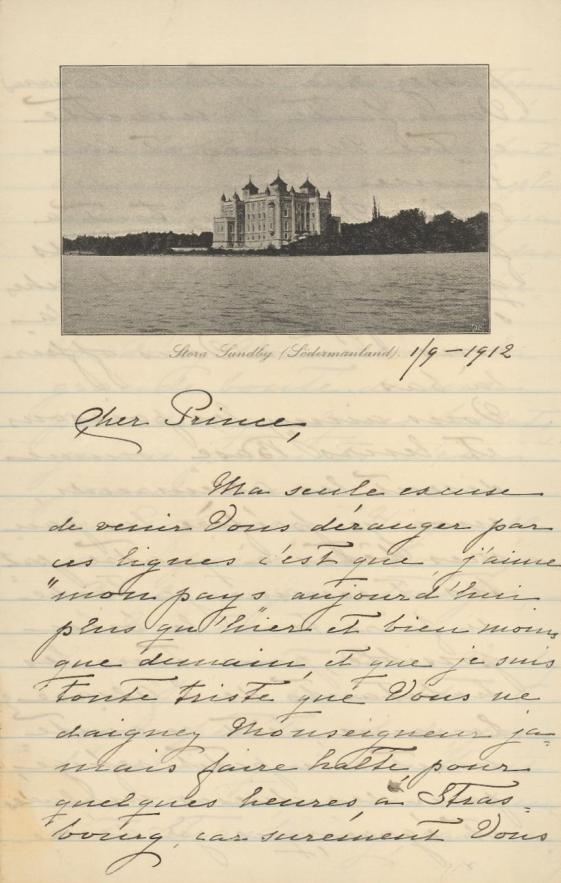 Stora Sundby (Södermanland). 1/9 – 1912
Cher Prince,
Ma seule excuse
de venir Vous déranger par
ces lignes c'est que j'aime
"mon pays aujourd'hui
plus qu'hier" et bien moins
que demain, et que je suis
toute triste que Vous ne
daignez Monseigneur ja=
mais faire halte pour
quelques heures à Stras=
bourg, car surement Vous